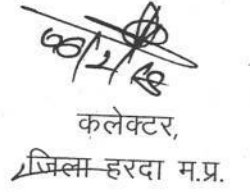 कलेक्टर,
जिला हरदा म.प्र.